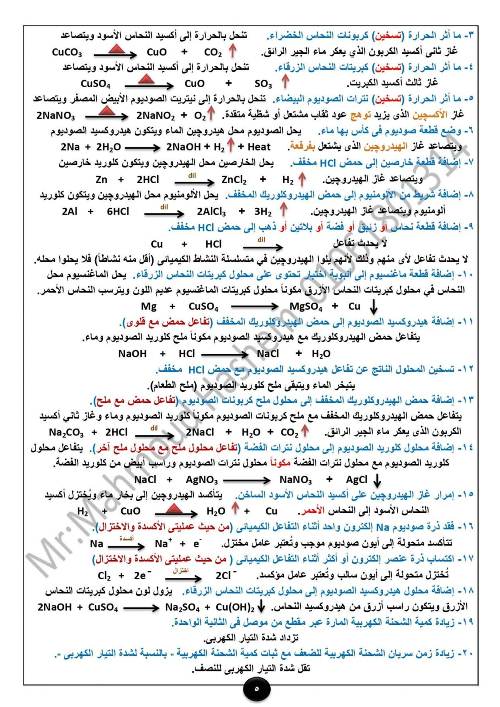 ٣- ما أثر الحرارة (تسخين) كربونات النحاس الخضراء. تنحل بالحرارة إلى أكسيد النحاس الأسود ويتصاعد
غاز ثانى أكسيد الكربون الذي يعكر ماء الجير الرائق. CuCO₃ → CuO + CO₂ ↑
٤- ما أثر الحرارة (تسخين) كبريتات النحاس الزرقاء. تنحل بالحرارة إلى أكسيد النحاس الأسود ويتصاعد
غاز ثالث أكسيد الكبريت. CuSO₄ → CuO + SO₃ ↑
٥- ما أثر الحرارة (تسخين) نترات الصوديوم البيضاء. تنحل بالحرارة إلى نيتريت الصوديوم الأبيض المصفر ويتصاعد
غاز الأكسجين الذى يزيد توهج عود ثقاب مشتعل أو شظية متقدة. 2NaNO₃ → 2NaNO₂ + O₂ ↑
٦- وضع قطعة صوديوم فى كأس بها ماء. يحل الصوديوم محل هيدروجين الماء ويتكون هيدروكسيد الصوديوم
ويتصاعد غاز الهيدروجين الذى يشتعل بفرقعة. 2Na + 2H₂O → 2NaOH + H₂ ↑ + Heat
٧- إضافة قطعة خارصين إلى حمض HCl مخفف. يحل الخارصين محل الهيدروجين ويتكون كلوريد خارصين
ويتصاعد غاز الهيدروجين. Zn + 2HCl dil→ ZnCl₂ + H₂ ↑
٨- إضافة شريط من الألومنيوم إلى حمض الهيدروكلوريك المخفف. يحل الألومنيوم محل الهيدروجين ويتكون كلوريد
ألومنيوم ويتصاعد غاز الهيدروجين. 2Al + 6HCl dil→ 2AlCl₃ + 3H₂ ↑
٩- إضافة قطعة نحاس أو زئبق أو فضة أو بلاتين أو ذهب إلى حمض HCl مخفف.
لا يحدث تفاعل Cu + HCl dil→
لا يحدث تفاعل لأى منهم وذلك لأنهم يلوا الهيدروجين في متسلسلة النشاط الكيميائى (أقل منه نشاطاً) فلا يحلوا محله.
١٠- إضافة قطعة ماغنسيوم إلى أنبوبة اختبار تحتوى على محلول كبريتات النحاس الزرقاء. يحل الماغنسيوم محل
النحاس في محلول كبريتات النحاس الأزرق مكوناً محلول كبريتات الماغنسيوم عديم اللون ويترسب النحاس الأحمر.
Mg + CuSO₄ → MgSO₄ + Cu ↓
١١- إضافة هيدروكسيد الصوديوم إلى حمض الهيدروكلوريك المخفف (تفاعل حمض مع قلوى).
يتفاعل حمض الهيدروكلوريك مع هيدروكسيد الصوديوم مكوناً ملح كلوريد الصوديوم وماء.
NaOH + HCl → NaCl + H₂O
١٢- تسخين المحلول الناتج عن تفاعل هيدروكسيد الصوديوم مع حمض HCl مخفف.
يتبخر الماء ويتبقى ملح كلوريد الصوديوم (ملح الطعام).
١٣- إضافة حمض الهيدروكلوريك المخفف إلى محلول ملح كربونات الصوديوم (تفاعل حمض مع ملح).
يتفاعل حمض الهيدروكلوريك المخفف مع ملح كربونات الصوديوم مكوناً ملح كلوريد الصوديوم وماء وغاز ثانى أكسيد
الكربون الذى يعكر ماء الجير الرائق. Na₂CO₃ + 2HCl dil→ 2NaCl + H₂O + CO₂ ↑
١٤- إضافة محلول كلوريد الصوديوم إلى محلول نترات الفضة (تفاعل محلول ملح مع محلول ملح آخر). يتفاعل محلول
كلوريد الصوديوم مع محلول نترات الفضة مكوناً محلول نترات الصوديوم وراسب أبيض من كلوريد الفضة.
NaCl + AgNO₃ → NaNO₃ + AgCl ↓
١٥- إمرار غاز الهيدروجين على أكسيد النحاس الأسود الساخن. يتأكسد الهيدروجين إلى بخار ماء ويختزل أكسيد
النحاس الأسود إلى النحاس الأحمر. H₂ + CuO → H₂O + Cu
١٦- فقد ذرة صوديوم Na إلكترون واحد أثناء التفاعل الكيميائى (من حيث عمليتى الأكسدة والاختزال).
تتأكسد متحولة إلى أيون صوديوم موجب وتُعتبر عامل مختزل. Na أكسدة→ Na⁺ + e⁻
١٧- اكتساب ذرة عنصر إلكترون أو أكثر أثناء التفاعل الكيميائى (من حيث عمليتى الأكسدة والاختزال)
تُختزل متحولة إلى أيون سالب وتُعتبر عامل مؤكسد. Cl₂ + 2e⁻ اختزال→ 2Cl⁻
١٨- إضافة محلول هيدروكسيد الصوديوم إلى محلول كبريتات النحاس الزرقاء. يزول لون محلول كبريتات النحاس
الأزرق ويتكون راسب أزرق من هيدروكسيد النحاس. 2NaOH + CuSO₄ → Na₂SO₄ + Cu(OH)₂ ↓
١٩- زيادة كمية الشحنة الكهربية المارة عبر مقطع من موصل فى الثانية الواحدة.
تزداد شدة التيار الكهربى.
٢٠- زيادة زمن سريان الشحنة الكهربية للضعف مع ثبات كمية الشحنة الكهربية - بالنسبة لشدة التيار الكهربى -.
تقل شدة التيار الكهربى للنصف.
٥